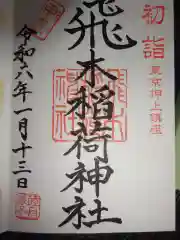 初詣
東京押上鎮座
飛木稲荷神社
令和六年一月十三日